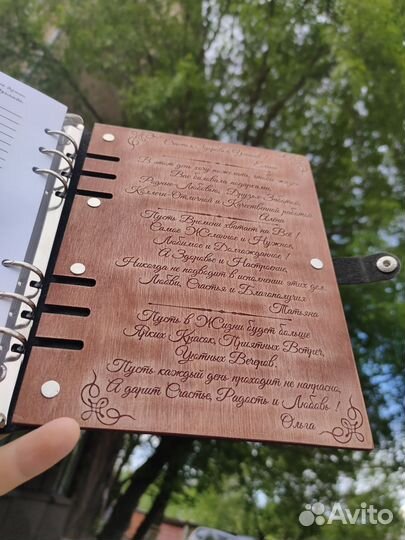 Счастья, Здоровья, Удачи
В этот день хочу пожелать, чтобы жизнь
Вас баловала подарками,
Родные - Любовью, Друзья - Заботой,
Коллеги - Отличной и Качественной работой
Алёна
Пусть Времени хватит на Всё !
Самое Желанное и Нужное,
Любимое и Долгожданное !
А Здоровье и Настроение,
Никогда не подводит в исполнении этих дел.
Любви, Счастья и Благополучия
Татьяна
Пусть в Жизни будет больше
Ярких Красок, Приятных Встреч,
Уютных Вечеров.
Пусть каждый день проходит не напрасно,
А дарит Счастье, Радость и Любовь !
Ольга
Avito